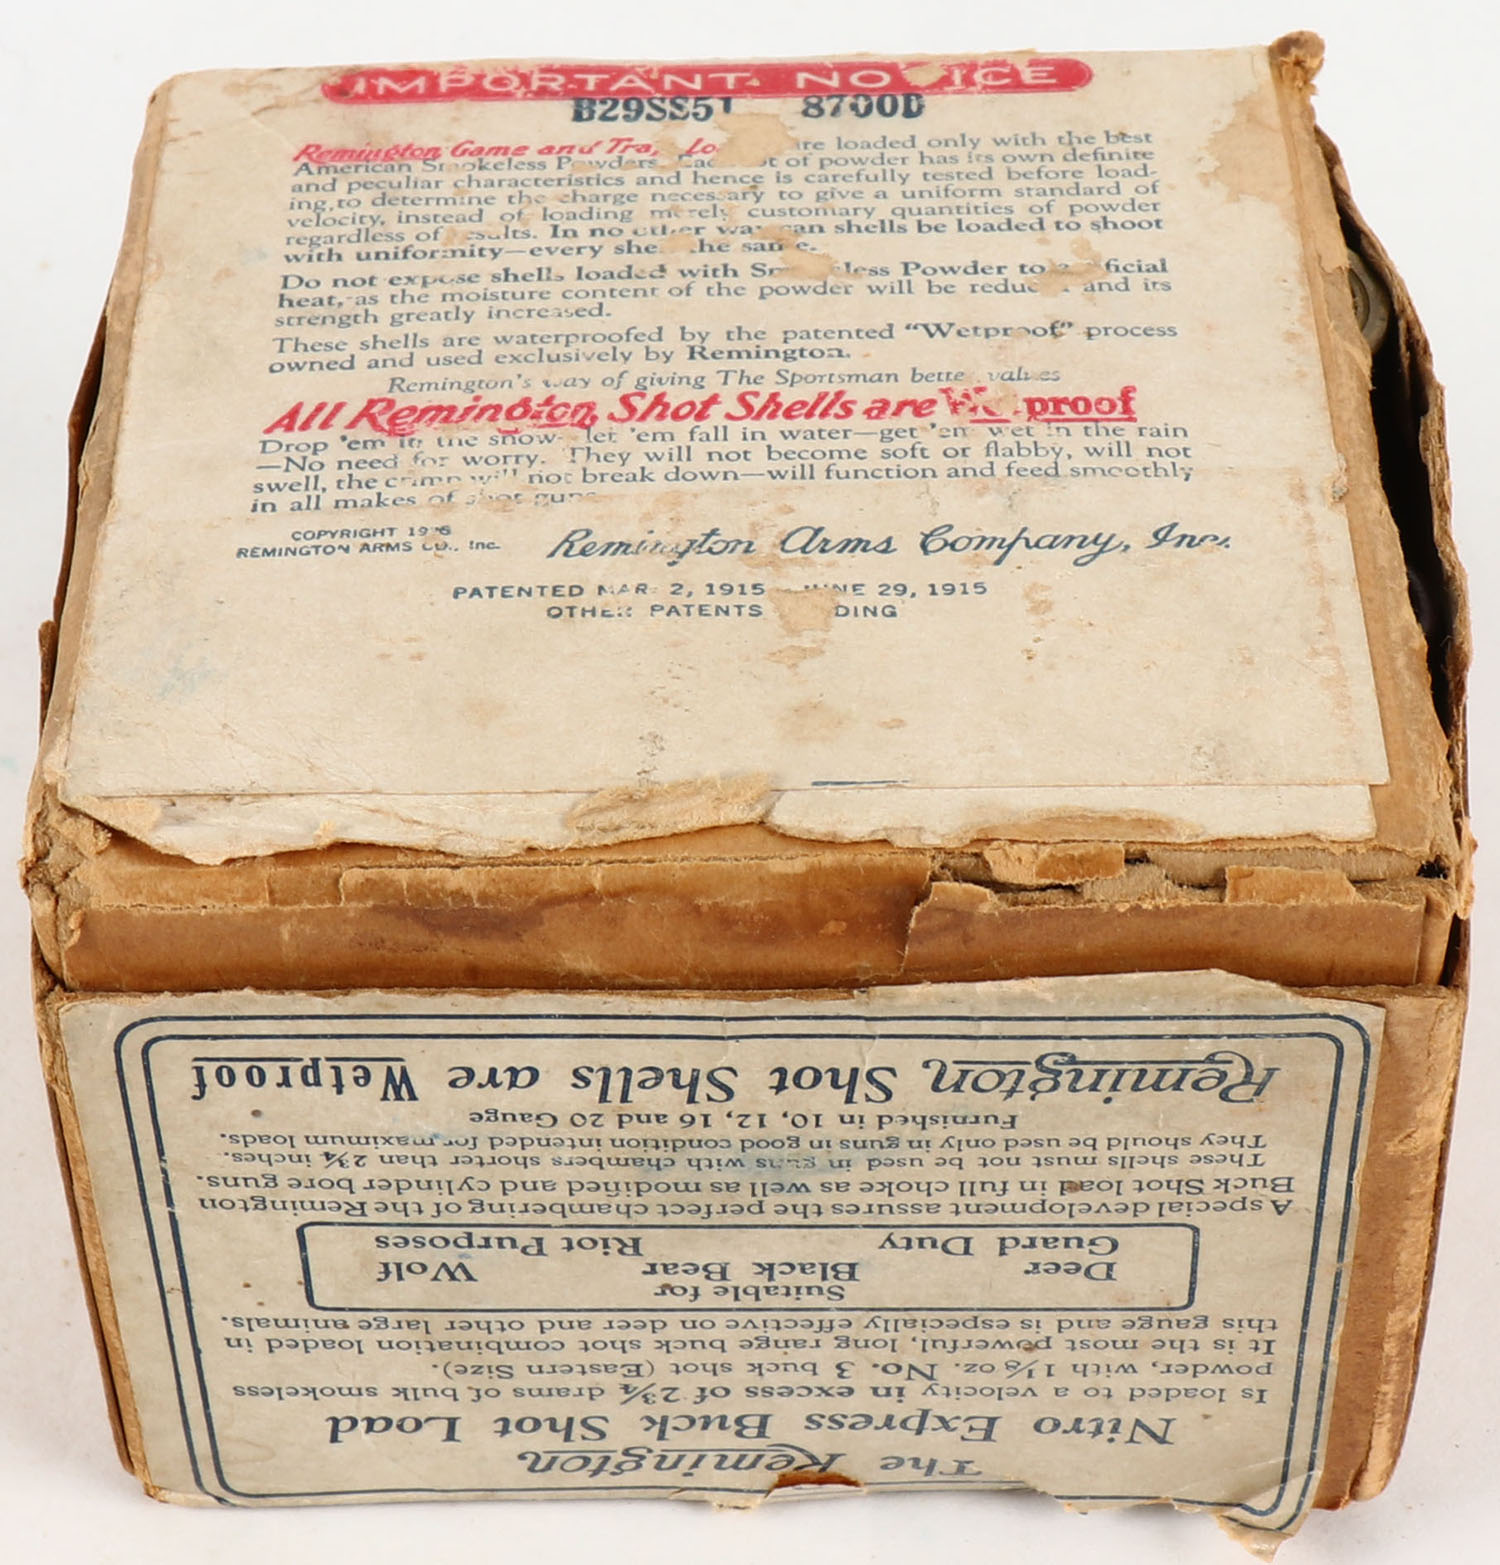 IMPORTANT NO ICE
B29SS51 8700D
Remington Game and are loaded only with the best
American Smokeless Powders. of powder has its own definite
and peculiar characteristics and hence is carefully tested before load-
ing, to determine the charge necessary to give a uniform standard of
velocity, instead of loading merely customary quantities of powder
regardless of results. In no other way can shells be loaded to shoot
with uniformity—every she the same.
Do not expose shells loaded with Powder to ficial
heat, as the moisture content of the powder will be and its
strength greatly increased.
These shells are waterproofed by the patented "Wetproof" process
owned and used exclusively by Remington.
Remington's way of giving The Sportsman values
All Remington Shot Shells are proof
Drop 'em in the snow— let 'em fall in water—get 'em wet in the rain
—No need for worry. They will not become soft or flabby, will not
swell, the crimp will not break down—will function and feed smoothly
in all makes of shot guns
COPYRIGHT
REMINGTON ARMS CO., Inc.
Remington Arms Company, Inc.
PATENTED MAR. 2, 1915 JUNE 29, 1915
OTHER PATENTS DING
The Remington
Nitro Express Buck Shot Load
Is loaded to a velocity in excess of 2¾ drams of bulk smokeless
powder, with 1⅛ oz. No. 3 buck shot (Eastern Size).
It is the most powerful, long range buck shot combination loaded in
this gauge and is especially effective on deer and other large animals.
Suitable for
Deer Black Bear Wolf
Guard Duty Riot Purposes
A special development assures the perfect chambering of the Remington
Buck Shot load in full choke as well as modified and cylinder bore guns.
These shells must not be used in guns with chambers shorter than 2¾ inches.
They should be used only in guns in good condition intended for maximum loads.
Furnished in 10, 12, 16 and 20 Gauge
Remington Shot Shells are Wetproof